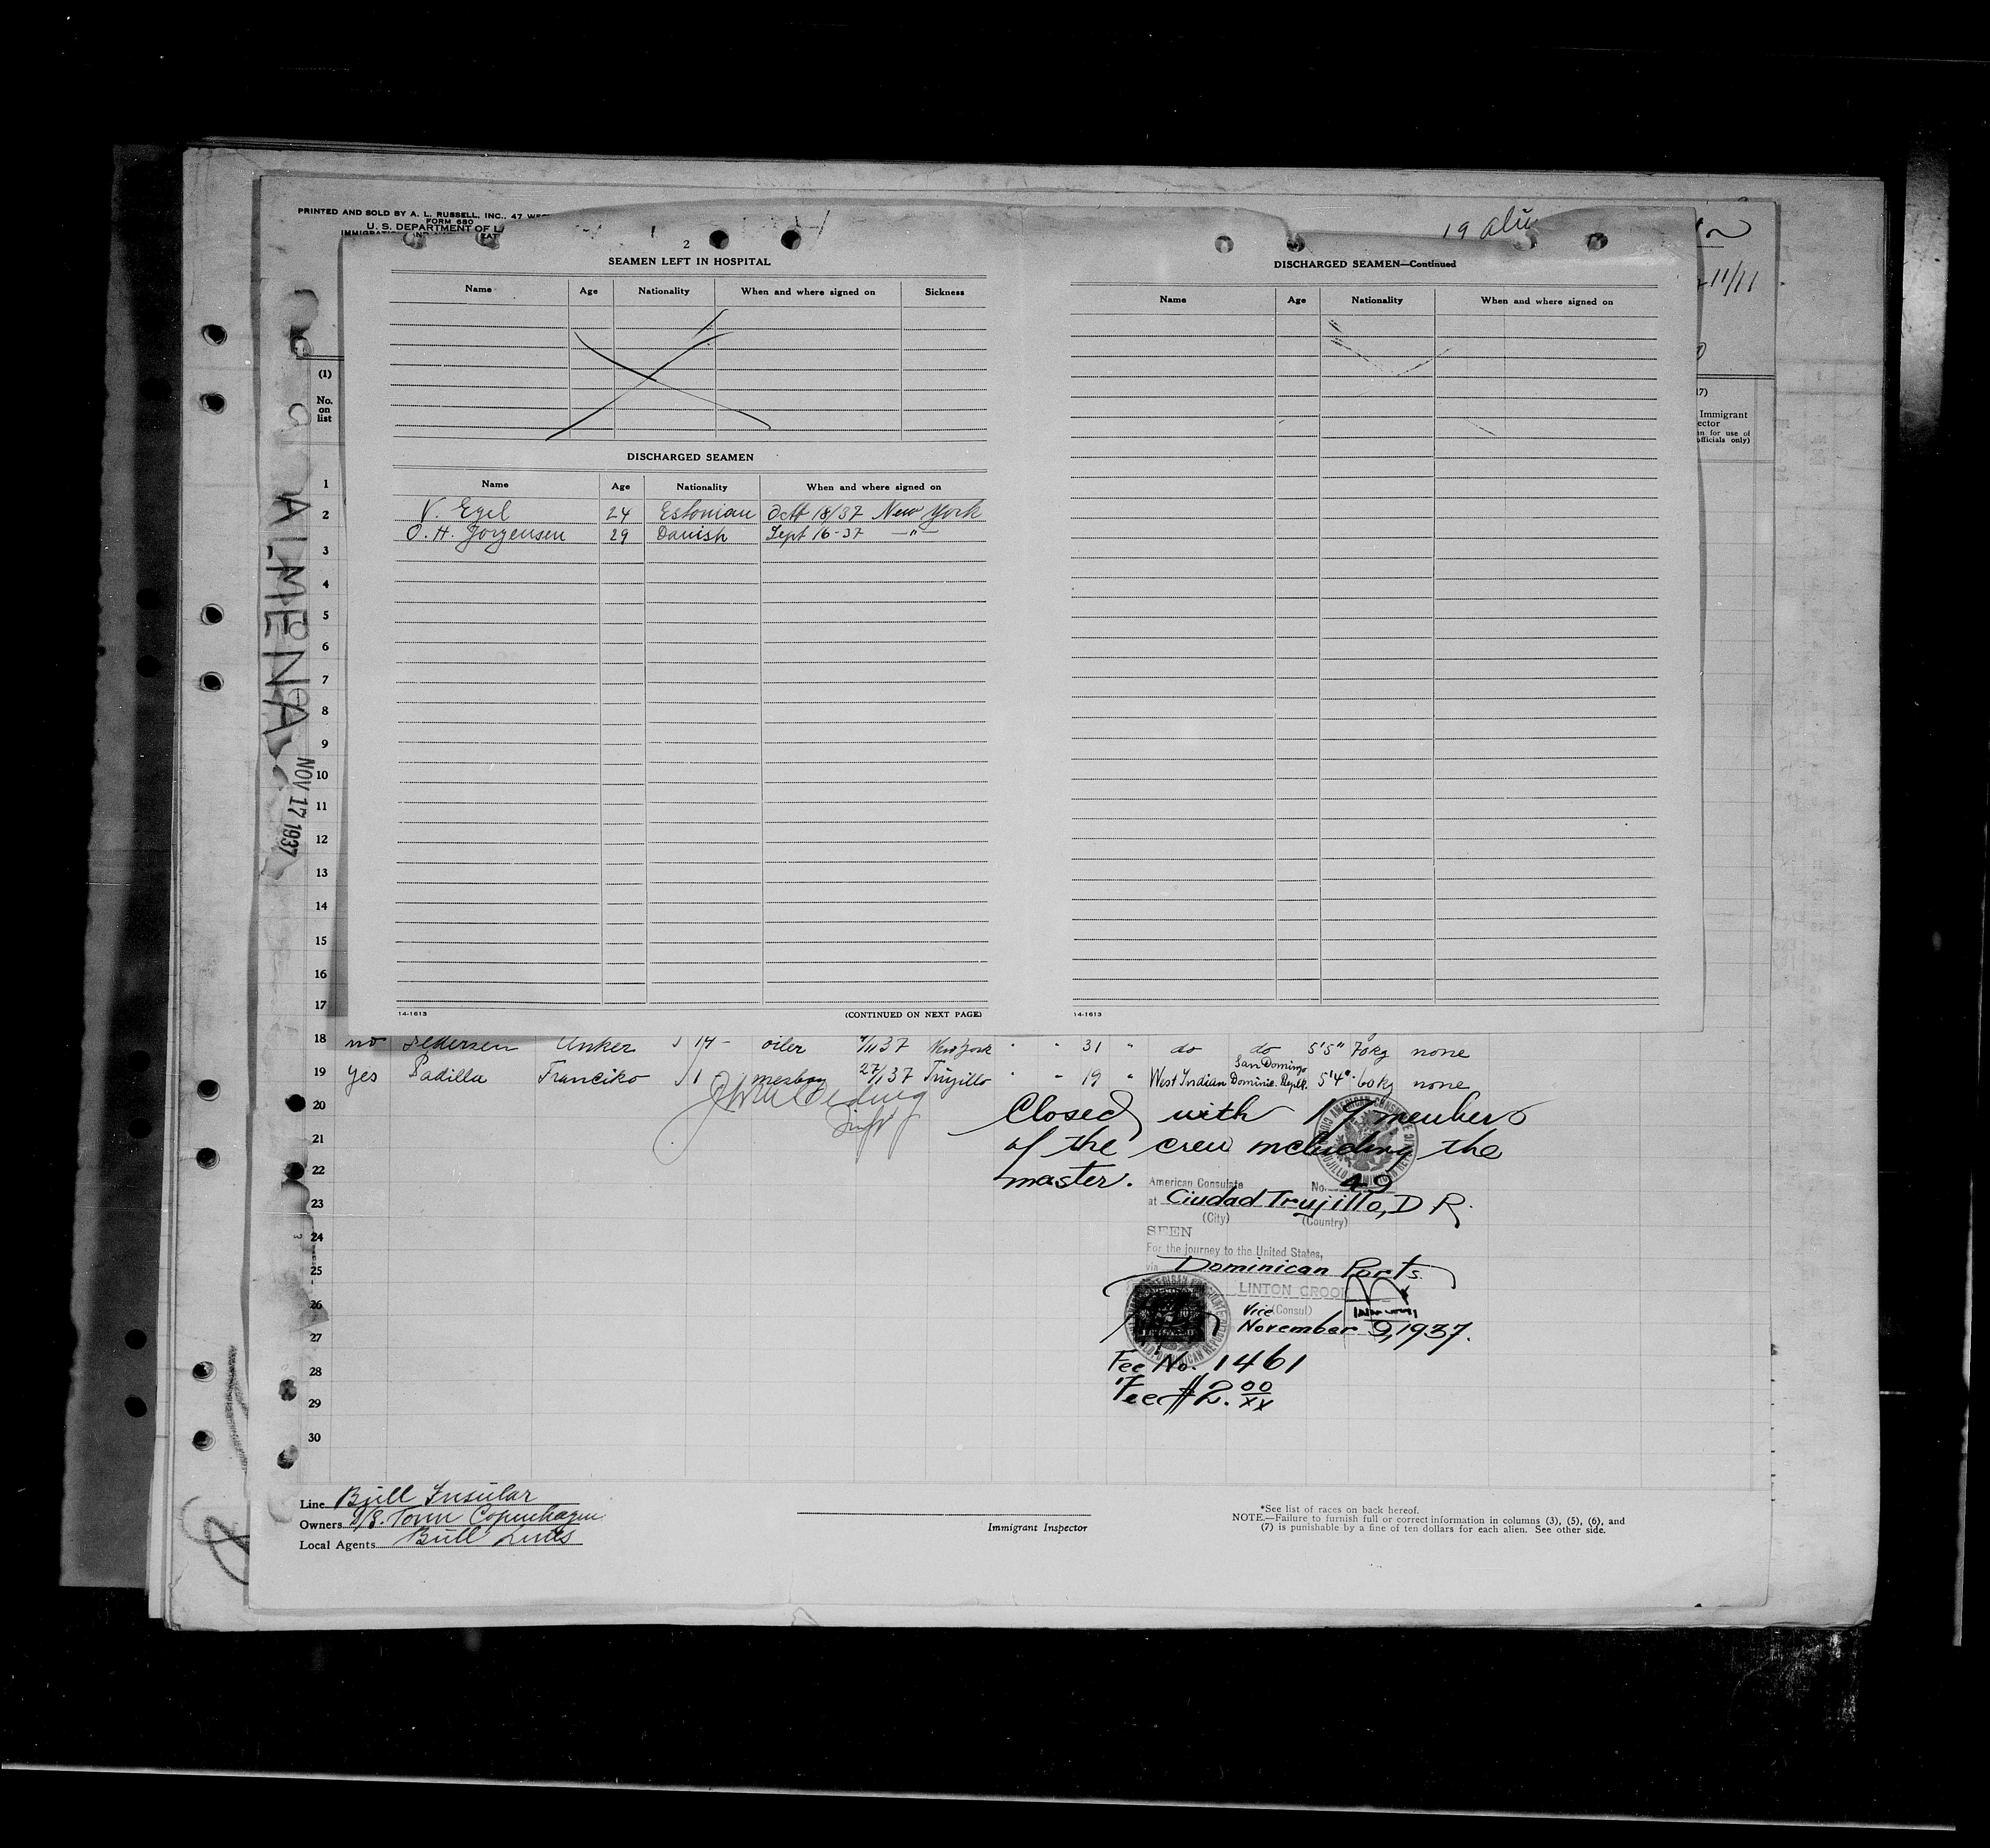 PRINTED AND SOLD BY A. L. RUSSELL, INC., 47
FORM 680
U. S. DEPARTMENT OF
19
11/11
2
SEAMEN LEFT IN HOSPITAL
Name Age Nationality When and where signed on Sickness
DISCHARGED SEAMEN
Name Age Nationality When and where signed on
V. Egel 24 Estonian Oct 18/37 New York
O. H. Jorgensen 29 Danish Sept 16-37 —"—
14-1613 (CONTINUED ON NEXT PAGE)
DISCHARGED SEAMEN—Continued
Name Age Nationality When and where signed on
14-1613
(1)
No.
on
list
Immigrant
officials only)
ALMENA
NOV 17 1937
1
2
3
4
5
6
7
8
9
10
11
12
13
14
15
16
17
18 no Pedersen Anker 14 - oiler 37 New York " " 31 " do do 5'5" 70kg none
19 yes Padilla Francisko 1 mesboy 27/ 37 Trujillo " " 19 " West Indian San Domingo Dominic. Republ. 5'4" 60kg none
20
21
22
23
24
25
26
27
28
29
30
Closed with 19 members
of the crew including the
master.
American Consulate No. 49
at Ciudad Trujillo, D R.
(City) (Country)
SEEN
For the journey to the United States,
via Dominican Ports.
LINTON CROOK
Vice (Consul)
November 9, 1937.
Fee No. 1461
Fee $2.00/xx
Line Bull Insular
Owners Copenhagen
Local Agents Bull Lines
Immigrant Inspector
*See list of races on back hereof.
NOTE.—Failure to furnish full or correct information in columns (3), (5), (6), and
(7) is punishable by a fine of ten dollars for each alien. See other side.